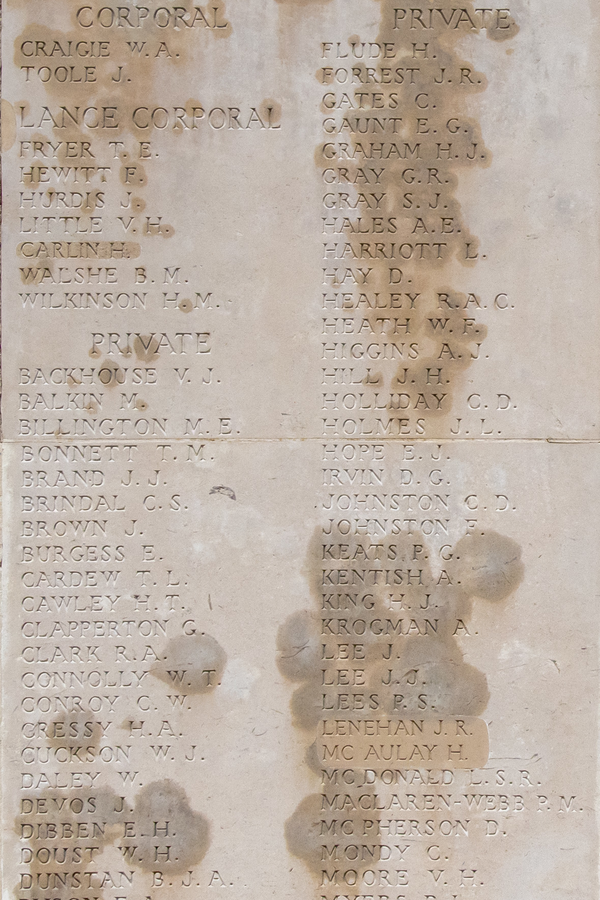 CORPORAL
CRAIGIE W.A.
TOOLE J.
LANCE CORPORAL
FRYER T. E.
HEWITT F.
HURDIS J.
LITTLE V. H.
CARLIN H.
WALSHE B. M.
WILKINSON H. M.
PRIVATE
BACKHOUSE V. J.
BALKIN M.
BILLINGTON M. E.
BONNETT T. M.
BRAND J. J.
BRINDAL C. S.
BROWN J.
BURGESS E.
CARDEW T. L.
CAWLEY H. T.
CLAPPERTON G.
CLARK R.A.
CONNOLLY W. T.
CONROY C. W.
CRESSY H.A.
CUCKSON W. J.
DALEY W.
DEVOS J.
DIBBEN E. H.
DOUST W. H.
DUNSTAN B. J. A.
PRIVATE
FLUDE H.
FORREST J. R.
GATES C.
GAUNT E. G.
GRAHAM H. J.
GRAY G.R.
GRAY S. J.
HALES A.E.
HARRIOTT L.
HAY D.
HEALEY R.A.C.
HEATH W. F.
HIGGINS A. J.
HILL J. H.
HOLLIDAY C. D.
HOLMES J. L.
HOPE E. J.
IRVIN D. G.
JOHNSTON C. D.
JOHNSTON F.
KEATS F. G.
KENTISH A.
KING H. J.
KROGMAN A.
LEE J.
LEE J. J.
LEES P. S.
LENEHAN J. R.
MC AULAY H.
MC DONALD L. S. R.
MACLAREN-WEBB P. M.
MC PHERSON D.
MONDY C.
MOORE V. H.